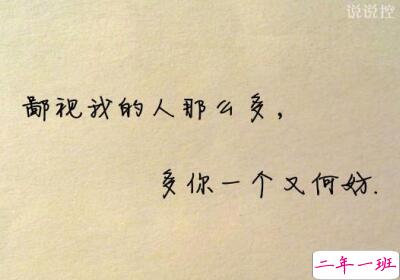 说说控
鄙视我的人那么多，
多你一个又何妨.
二年一班